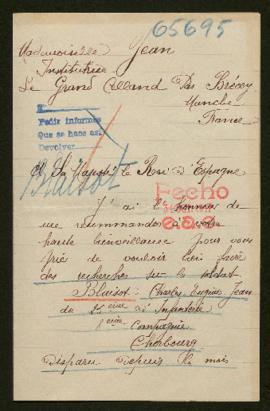 65695
Mademoiselle Jean
Institutrice
Le Grand Celland Par Brécey
Manche
France
Pedir informes
Que se hace así
Devolver
Blaisot
A Sa Majesté le Roi d'Espagne
Fecho
J'ai l'honneur de
me recommander à votre
haute bienveillance pour vous
prie de vouloir bien faire
des recherches sur le soldat
Blaisot: Charles Eugène Jean
du ème d'Infanterie
ème Compagnie
Cherbourg
Disparu depuis le mois